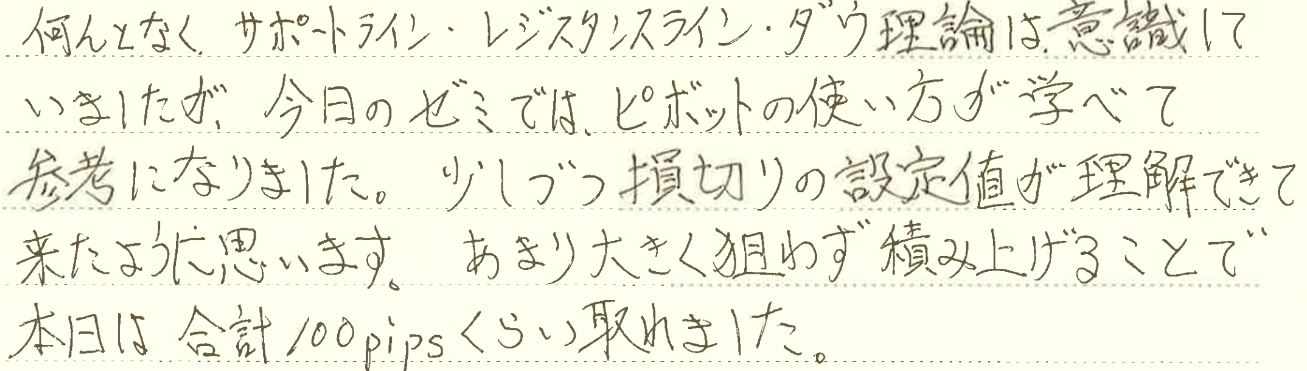 何んとなく、サポートライン・レジスタンスライン・ダウ理論は、意識して
いましたが、今日のゼミでは、ピボットの使い方が学べて
参考になりました。少しづつ損切りの設定値が理解できて
来たように思います。あまり大きく狙わず積み上げることで
本日は合計100pipsくらい取れました。